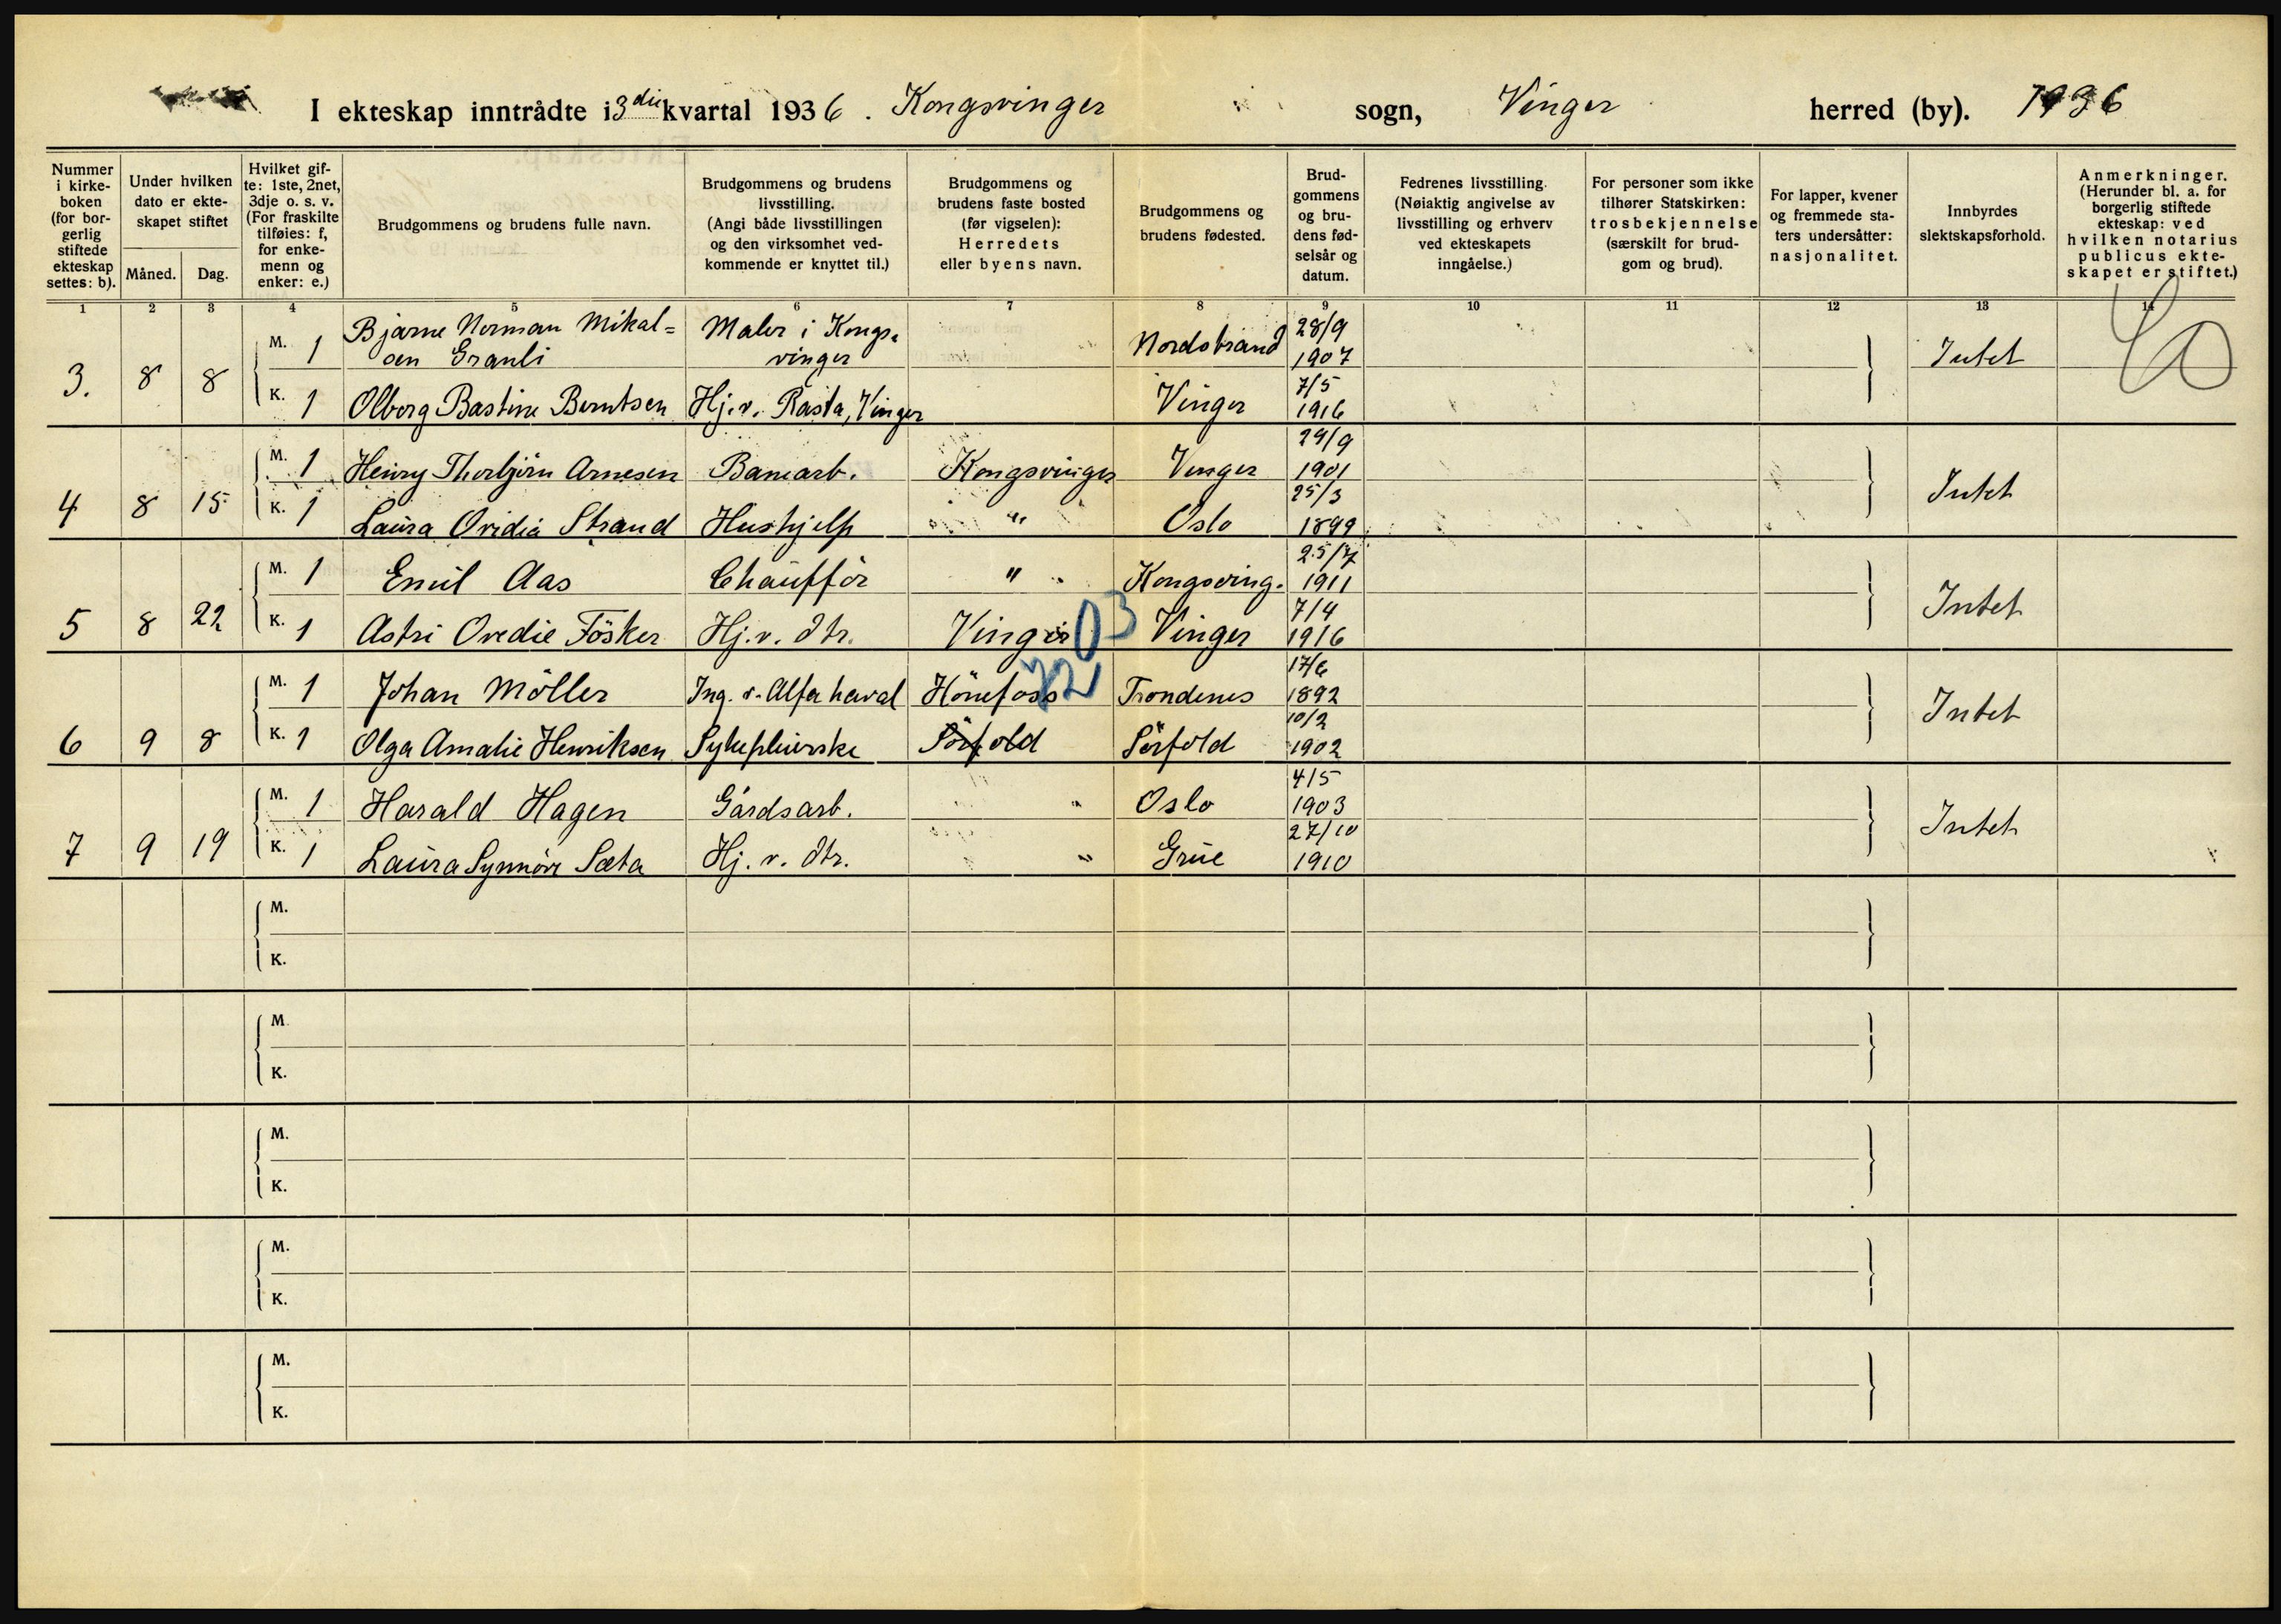 I ekteskap inntrådte i 3die kvartal 1936. Kongsvinger sogn, Vinger herred (by). 1936
Nummer i kirkeboken (for borgerlig stiftede ekteskap settes: b).
Under hvilken dato er ekteskapet stiftet
Måned. Dag.
Hvilket gifte: 1ste, 2net, 3dje o. s. v. (For fraskilte tilføies: f, for enkemenn og enker: e.)
Brudgommens og brudens fulle navn.
Brudgommens og brudens livsstilling. (Angi både livsstillingen og den virksomhet vedkommende er knyttet til.)
Brudgommens og brudens faste bosted (før vigselen): Herredets eller byens navn.
Brudgommens og brudens fødested.
Brudgommens og brudens fødselsår og datum.
Fedrenes livsstilling. (Nøiaktig angivelse av livsstilling og erhverv ved ekteskapets inngåelse.)
For personer som ikke tilhører Statskirken: trosbekjennelse (særskilt for brudgom og brud).
For lapper, kvener og fremmede staters undersåtter: nasjonalitet.
Innbyrdes slektskapsforhold.
Anmerkninger. (Herunder bl. a. for borgerlig stiftede ekteskap: ved hvilken notarius publicus ekteskapet er stiftet.)
1 2 3 4 5 6 7 8 9 10 11 12 13 14
3. 8 8 M. 1 Bjarne Norman Mikal= sen Granli Maler i Kongs. vinger Nordstrand 28/9 1907 Intet
K. 1 Olborg Bastine Berntsen Hj.v. Rasta, Vinger Vinger 7/5 1916
4 8 15 M. 1 Henry Thorbjörn Arnesen Banearb. Kongsvinger Vinger 29/9 1901 Intet
K. 1 Laura Ovidia Strand Hushjelp " Oslo 25/3 1899
5 8 22 M. 1 Emil Aas Chaufför " Kongsving. 25/7 1911 Intet
K. 1 Astri Ovedie Fösker Hj.v. dtr. Vinger Vinger 7/4 1916
03
72
6 9 8 M. 1 Johan Möller Ing. v. Alfa Laval Hönefoss Trondenes 17/6 1892 Intet
K. 1 Olga Amalie Henriksen Sykepleierske Sörfold Sörfold 10/2 1902
7 9 19 M. 1 Harald Hagen Gårdsarb. " Oslo 4/5 1903 Intet
K. 1 Laura Synnöve Sæta Hj. v. dtr. " Grue 27/10 1910
M.
K.
M.
K.
M.
K.
M.
K.
M.
K.